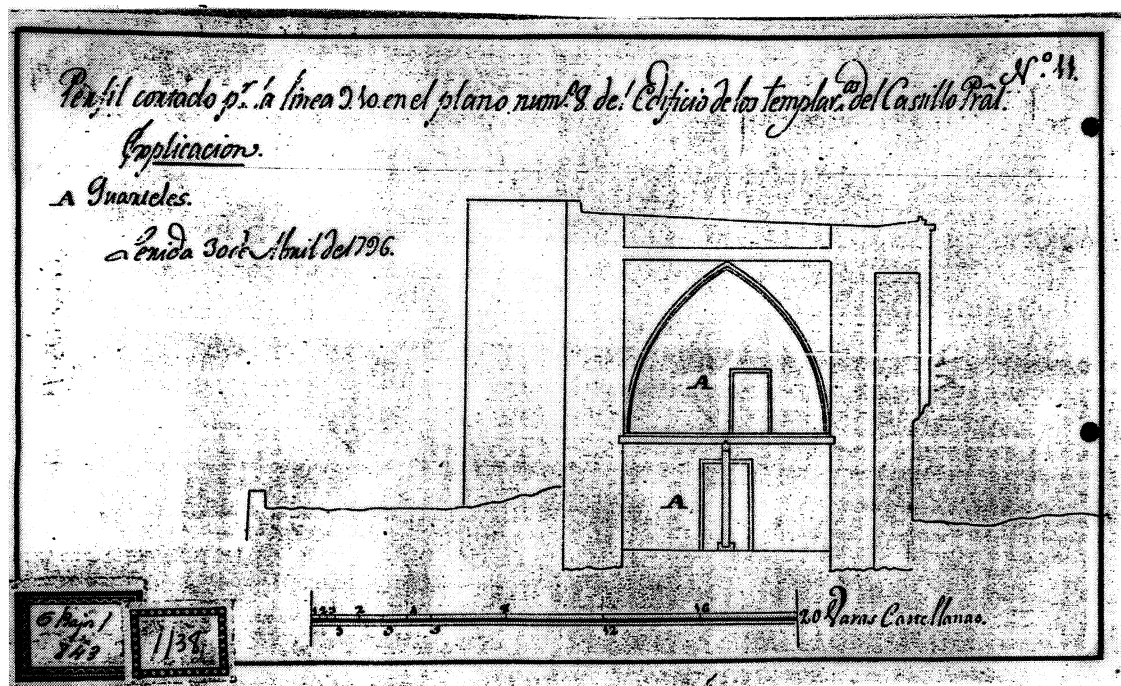 N.º 11.
Perfil cortado p.r la linea 9 10. en el plano num.º 8. de l Edificio de los templar.os del Castillo Prâl.
Explicacion.
A Quarteles.
Lérida 30 de Abril de 1796.
A
A
1 2 3 2 4 8 16 20 Varas Castellanas.
3 5 6 12
1138